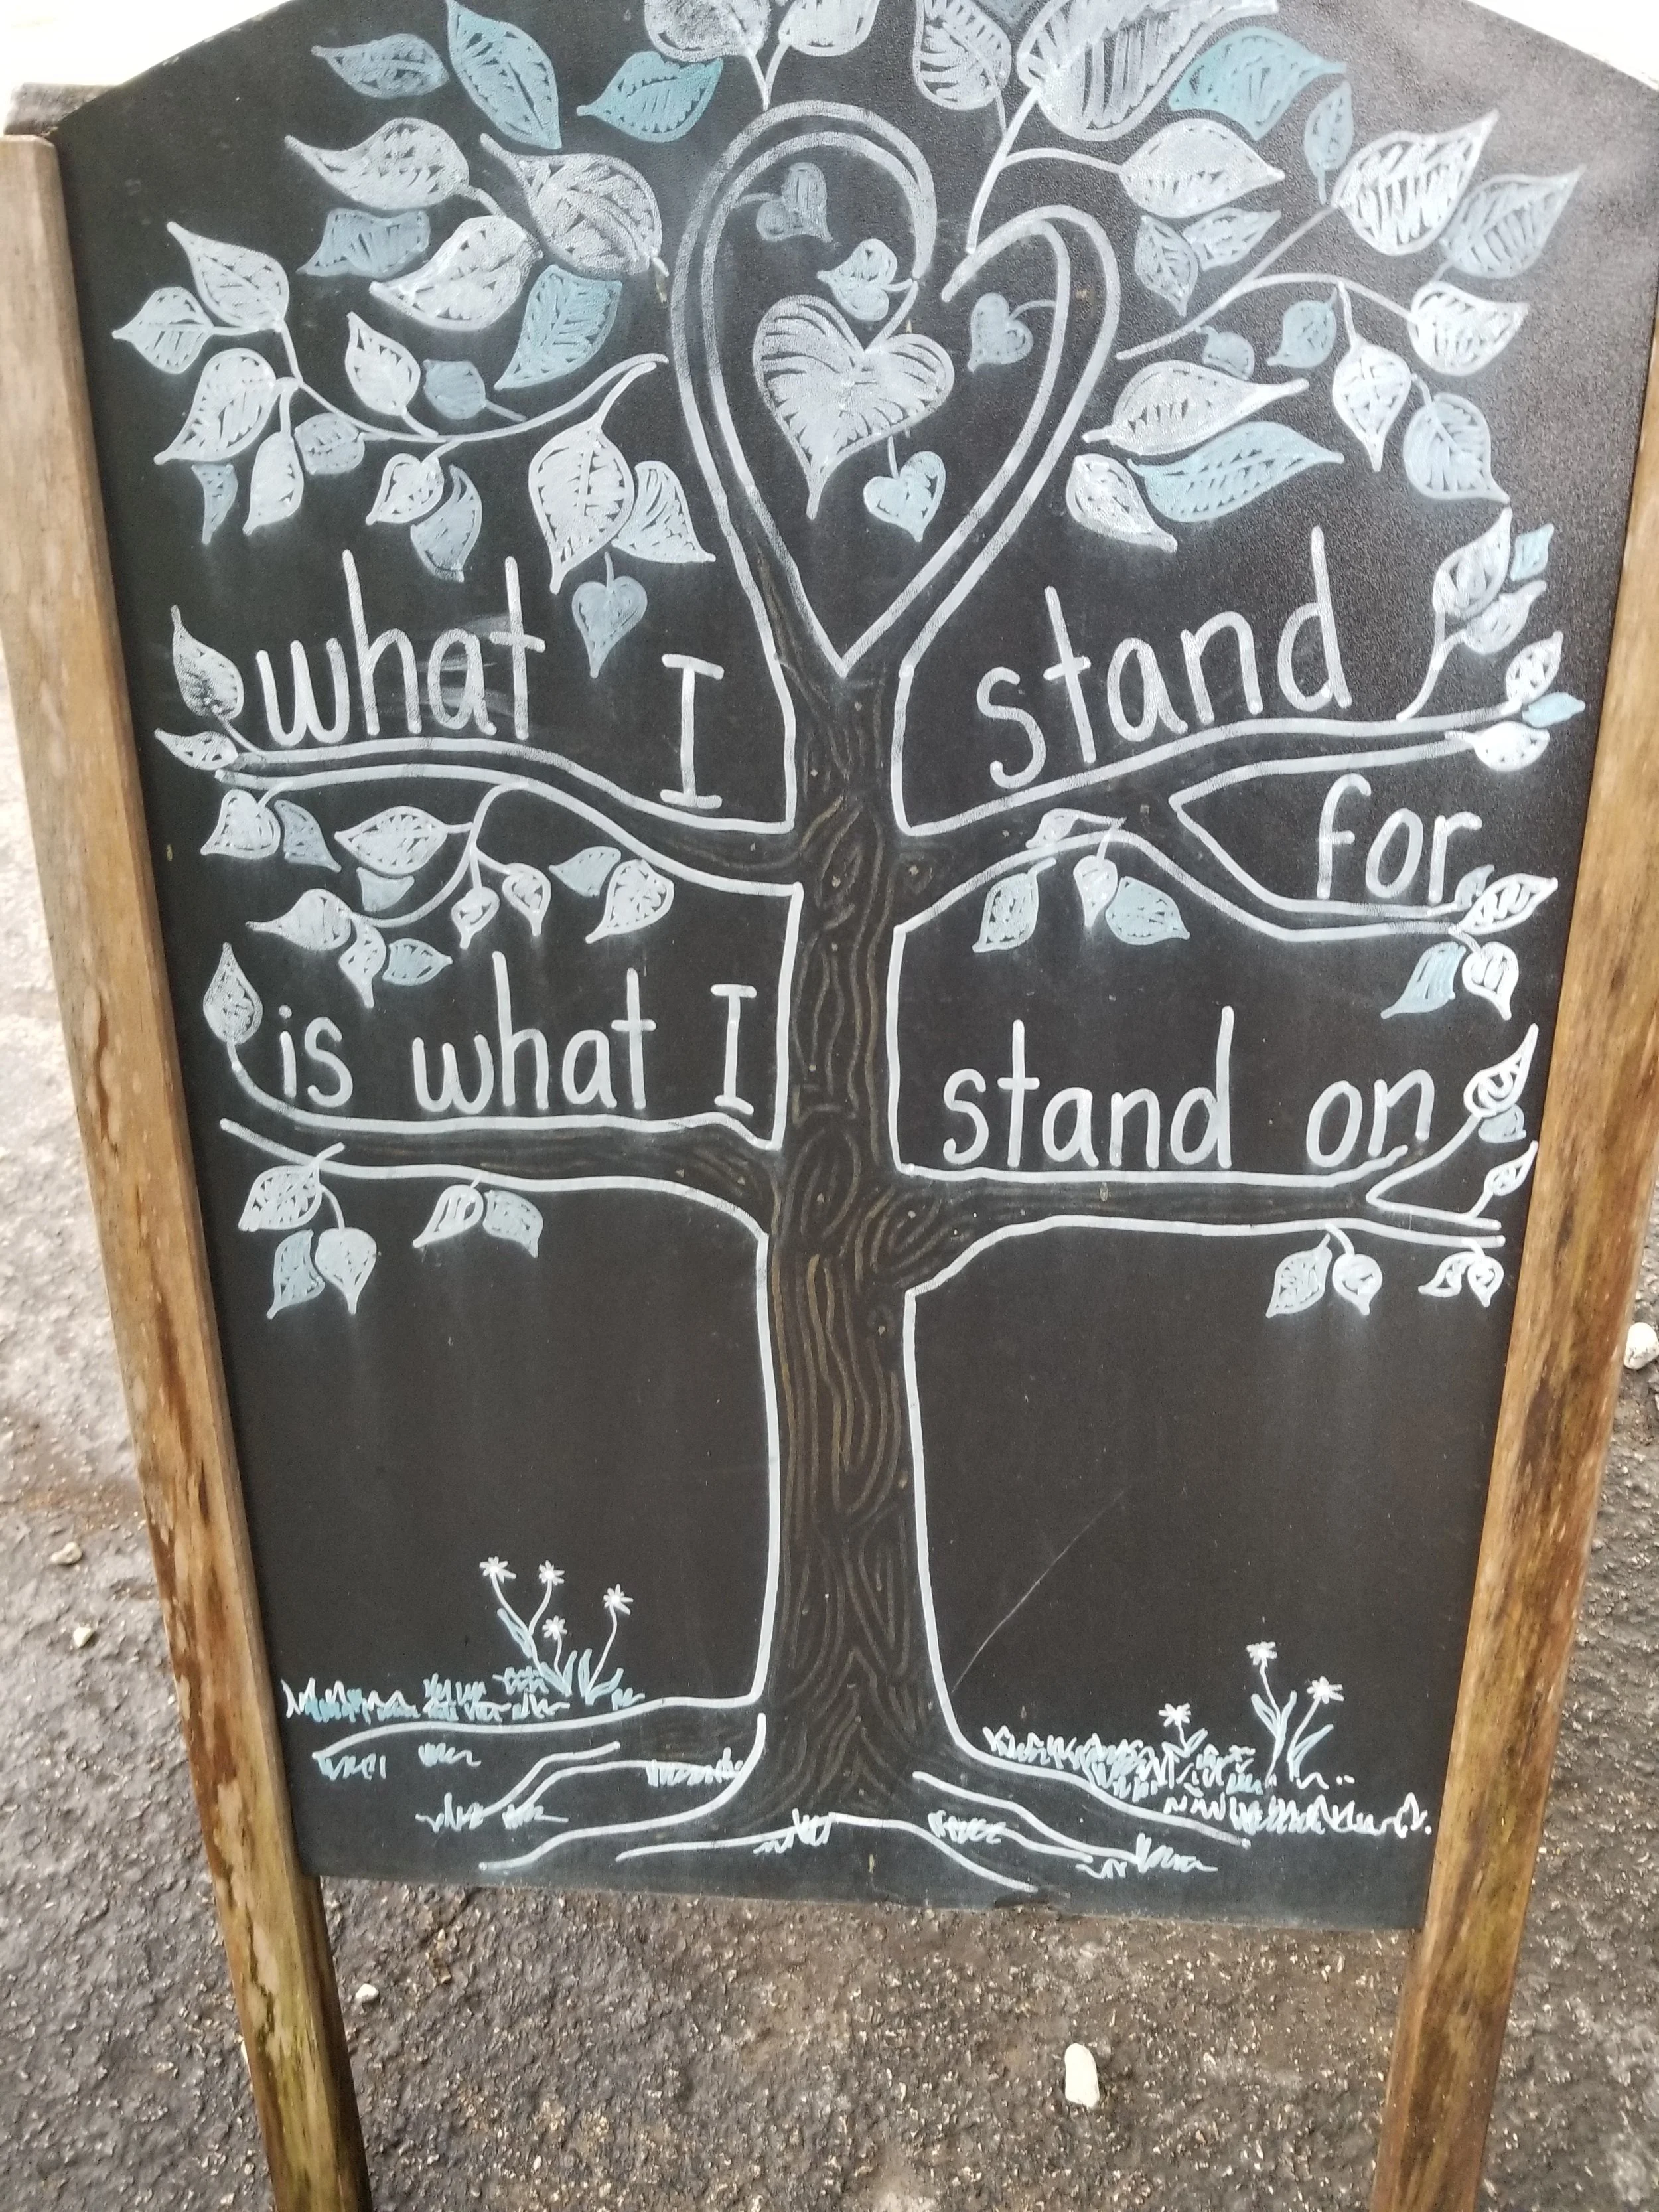 what I stand
for
is what I stand on